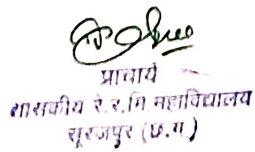 प्राचार्य
शासकीय रे.र.मि महाविद्यालय
सूरजपुर (छ.ग.)